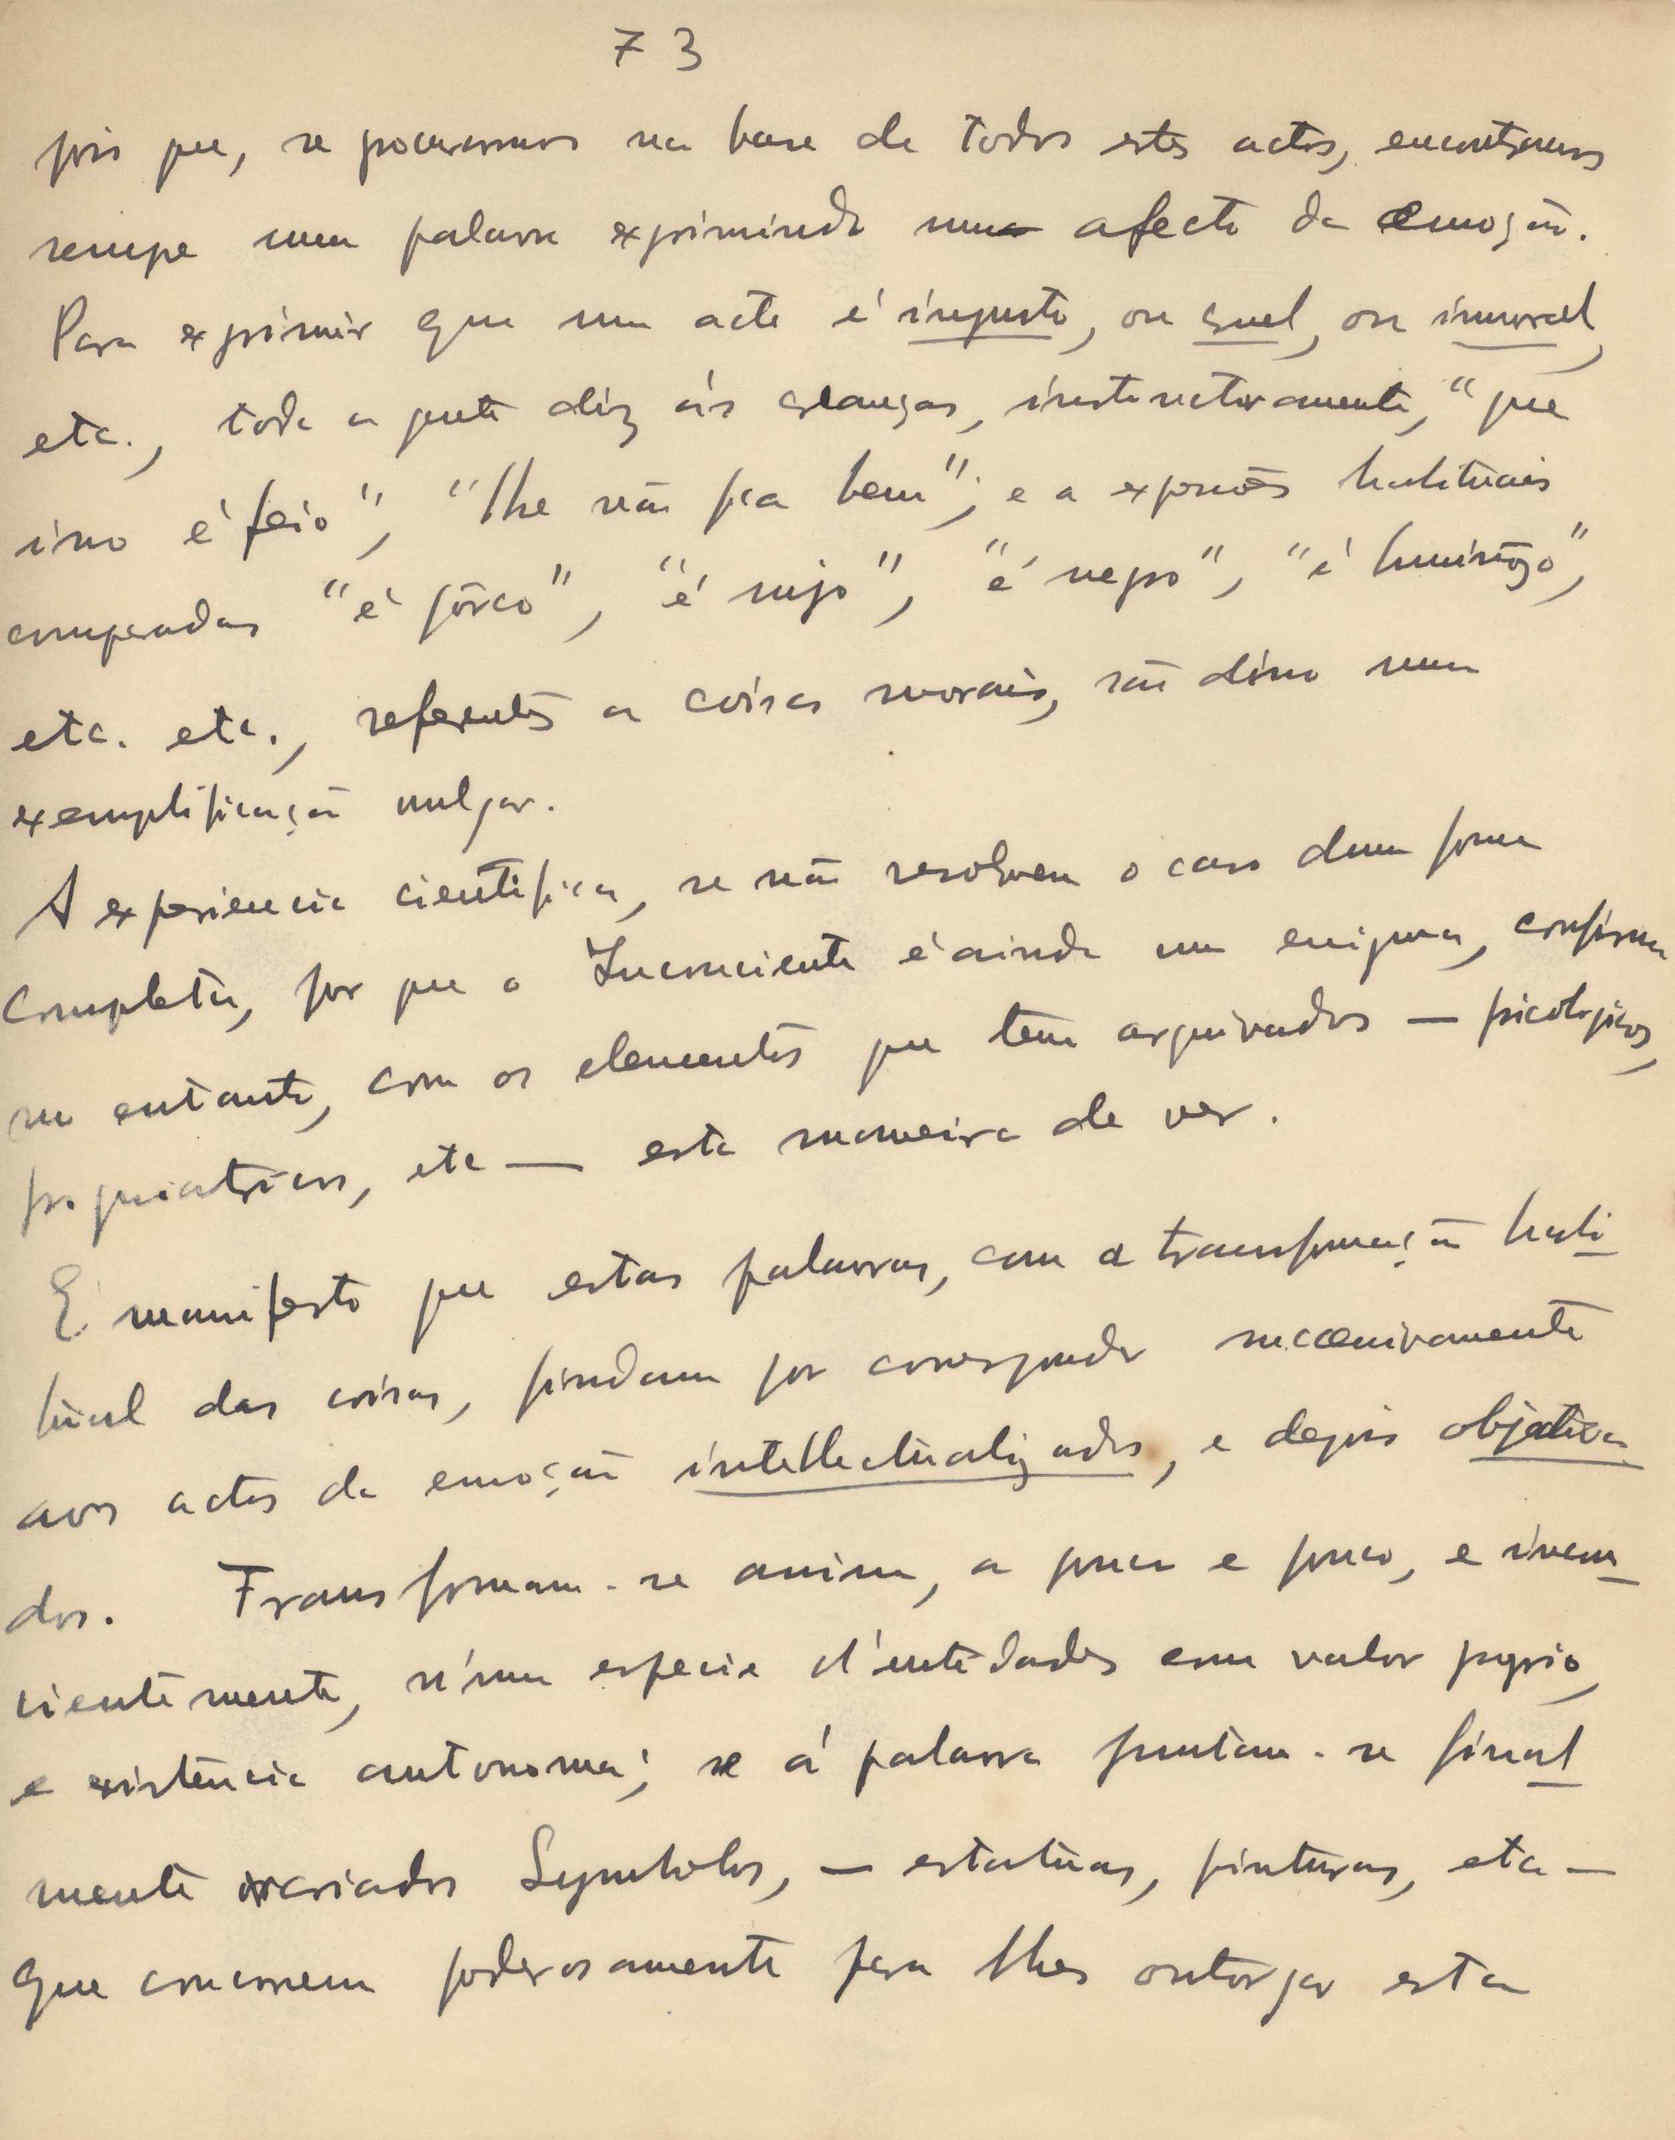 73
pois que, se procurarmos na base de todos estes actos, encontramos
sempre uma palavra exprimindo um afecto da emoção.
Para exprimir que um acto é injusto, ou cruel, ou immoral,
etc., toda a gente diz ás creanças, instinctivamente, "que
isso é feio", "lhe não fica bem"; e a expressões habituais
comparadas "é pôrco", "é sujo", "é negro", "é luminôso",
etc. etc., referentes a coisas morais, são disso uma
exemplificação vulgar.
A experiencia cientifica, se não resolveu o caso duma forma
completa, por que o Inconsciente é ainda um enigma, confirma
no entanto, com os elementos que tem arquivados — psicologicos,
psiquiatricos, etc — esta maneira de ver.
E manifesto que estas palavras, com a transformação habi
tual das coisas, findam por corresponder sucessivamente
aos actos da emoção intellectualizados, e depois objectiva
dos. Transformam-se assim, a pouco e pouco, e incons
cientemente, n'uma especie d'entidades com valor proprio,
e existencia autonoma; se á palavra juntam-se final
mente variados Symbolos, — estatuas, pinturas, etc —
que concorrem poderosamente para lhes outorgar esta